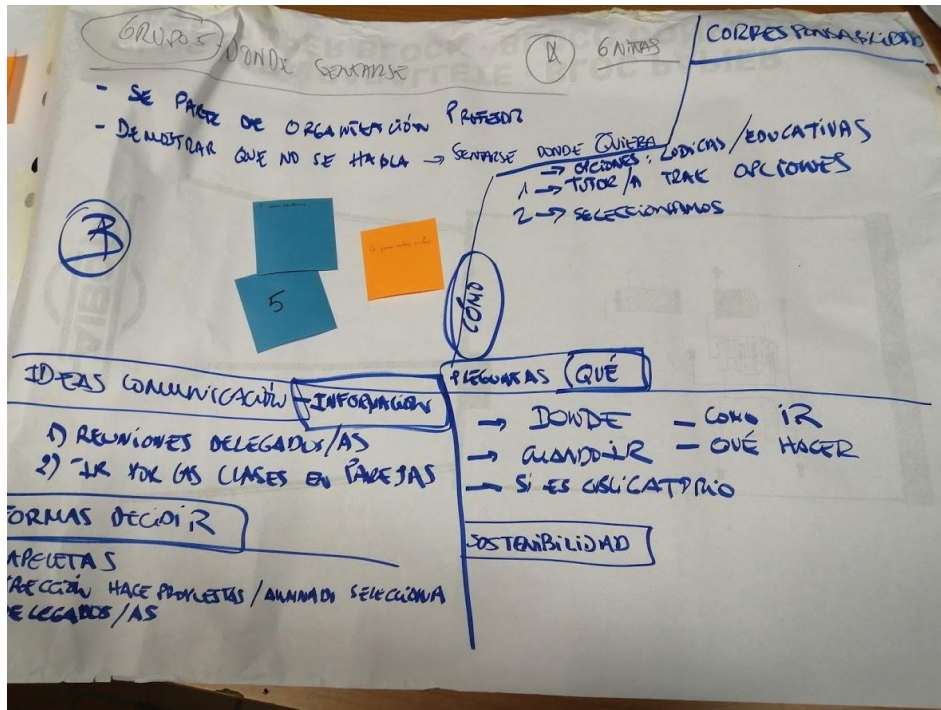 GRUPO 5 - DONDE SENTARSE
A
6 NIÑAS
CORRESPONSABILIDAD
- SE PARTE DE ORGANIZACIÓN PREFEDI
- DEMOSTRAR QUE NO SE HABLA → SENTARSE DONDE QUIERA
→ OPCIONES: LÚDICAS/EDUCATIVAS
1 → TUTOR/A TRAE OPCIONES
2 → SELECCIONAMOS
B
5
CÓMO
IDEAS COMUNICACIÓN - INFORMACIÓN
1) REUNIONES DELEGADOS/AS
2) IR POR LAS CLASES EN PAREJAS
FORMAS DECIDIR
APELETAS
RECCIÓN HACE PROPUESTAS/ALUMNADO SELECCIONA
ELEGADOS/AS
PREGUNTAS QUÉ
→ DONDE - COMO IR
→ CUANDO IR - QUÉ HACER
→ SI ES OBLIGATORIO
SOSTENIBILIDAD